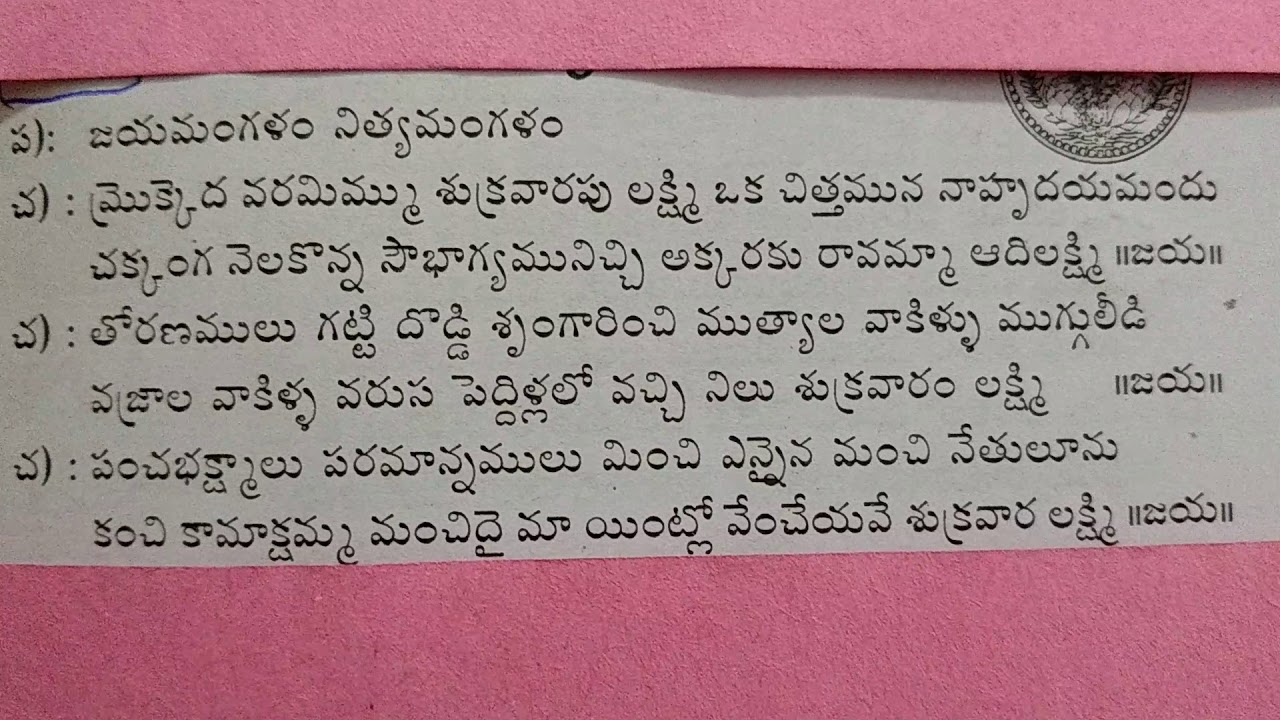 ప): జయమంగళం నిత్యమంగళం
చ) : మ్రొక్కెద వరమిమ్ము శుక్రవారపు లక్ష్మి ఒక చిత్తమున నాహృదయమందు
చక్కంగ నెలకొన్న సౌభాగ్యమునిచ్చి అక్కరకు రావమ్మా ఆదిలక్ష్మి ॥జయ॥
చ) : తోరణములు గట్టి దొడ్డి శృంగారించి ముత్యాల వాకిళ్ళు ముగ్గులీడి
వజ్రాల వాకిళ్ళ వరుస పెద్దిళ్లలో వచ్చి నిలు శుక్రవారం లక్ష్మి ॥జయ॥
చ) : పంచభక్ష్మాలు పరమాన్నములు మించి ఎన్నైన మంచి నేతులూను
కంచి కామాక్షమ్మ మంచిదై మా యింట్లో వేంచేయవే శుక్రవార లక్ష్మి ॥జయ॥